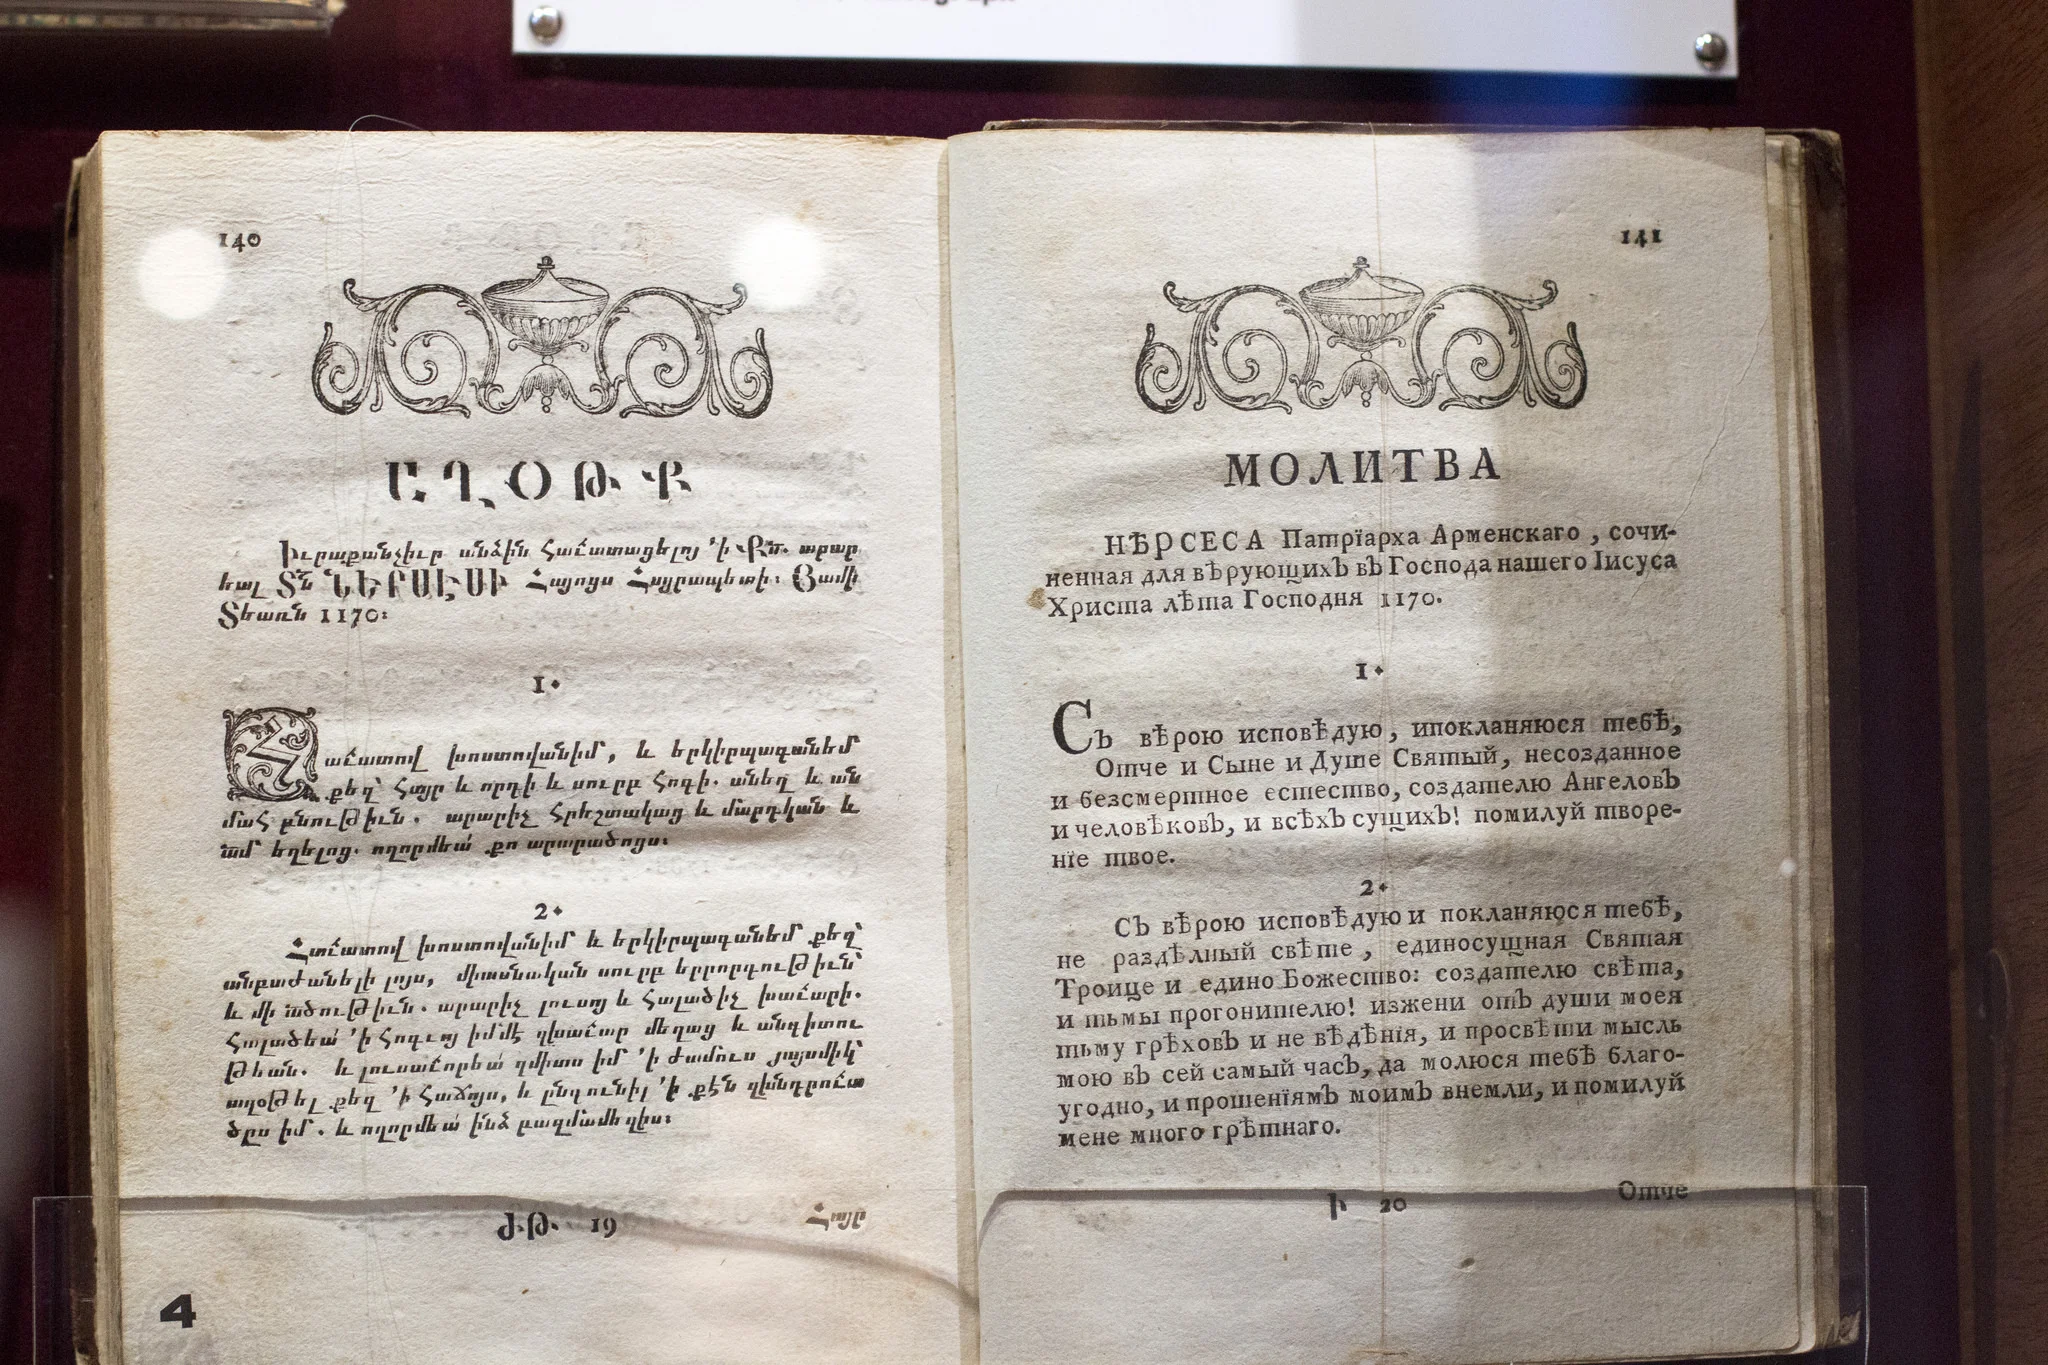 140
ԸՂՕԹՔ
Իւրաքանչիւր անձին Հաւատացելոյ ՚ի Քս. արար
եալ Տն ՆԵՐՍԷՍԻ Հայոց Հայրապետի։ Յամի
Տեառն 1170։
1.
Հաւատով խոստովանիմ, և երկիրպագանեմ
քեզ՝ Հայր և որդի և սուրբ Հոգի. անեղ և ան
մահ բնութիւն. արարիչ Հրեշտակաց և մարդկան և
ամ եղելոց. ողորմեա՛ քո արարածոցս։
2.
Հաւատով խոստովանիմ և երկիրպագանեմ քեզ՝
անբաժանելի լոյս, միասնական սուրբ երրորդութիւն՝
և մի ածութիւն. արարիչ լուսոյ և Հալածիչ խաւարի.
Հալածեա՛ ՚ի Հոգւոյ իմմէ զխաւար մեղաց և անգիտու
թեան. և լուսաւորեա՛ զմիտս իմ ՚ի ժամուս յայսմիկ՝
աղօթել քեզ ՚ի Հաճոյս, և ընդունիլ ՚ի քէն զխնդրուա
ծըս իմ. և ողորմեա՛ ինձ բազմամեղիս։
ԺԹ. 19 Հայր
4
141
МОЛИТВА
НѢРСЕСА Патрїарха Арменскаго, сочи-
ненная для вѣрующихЪ вЪ Господа нашего Іисуса
Христа лѣта Господня 1170.
1.
СЪ вѣрою исповѣдую, ипокланяюся тебѣ,
Отче и Сыне и Душе Святый, несозданное
и безсмертное естество, создателю АнгеловЪ
и человѣковЪ, и всѣхЪ сущихЪ! помилуй творе-
нїе твое.
2.
СЪ вѣрою исповѣдую и покланяюся тебѣ,
не раздѣлный свѣте, единосущная Святая
Троице и едино Божество: создателю свѣта,
и тьмы прогонителю! изжени отЪ души моея
тьму грѣховЪ и не вѣдѣнїя, и просвѣти мысль
мою вЪ сей самый часЪ, да молюся тебѣ благо-
угодно, и прошенїямЪ моимЪ внемли, и помилуй
мене много грѣтнаго.
Ի 20 Отче